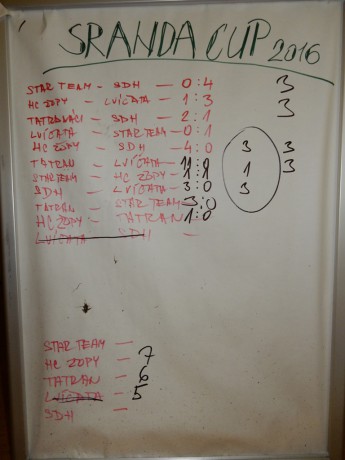 SRANDA CUP 2016
STAR TEAM - SDH - 0:4 3
HC ZOPY - LVÍČATA - 1:3 3
TATRANÁCI - SDH - 2:1
LVÍČATA - STAR TEAM - 0:1
HC ZOPY - SDH - 4:0 3 3
TATRAN - LVÍČATA - 1:0 1 3
STAR TEAM - HC ZOPY - 1:1
SDH - LVÍČATA - 3:0 3
TATRAN - STAR TEAM - 3:0
HC ZOPY - TATRAN - 1:0
LVÍČATA - SDH -
STAR TEAM -
HC ZOPY - 7
TATRAN - 6
LVÍČATA - 5
SDH -